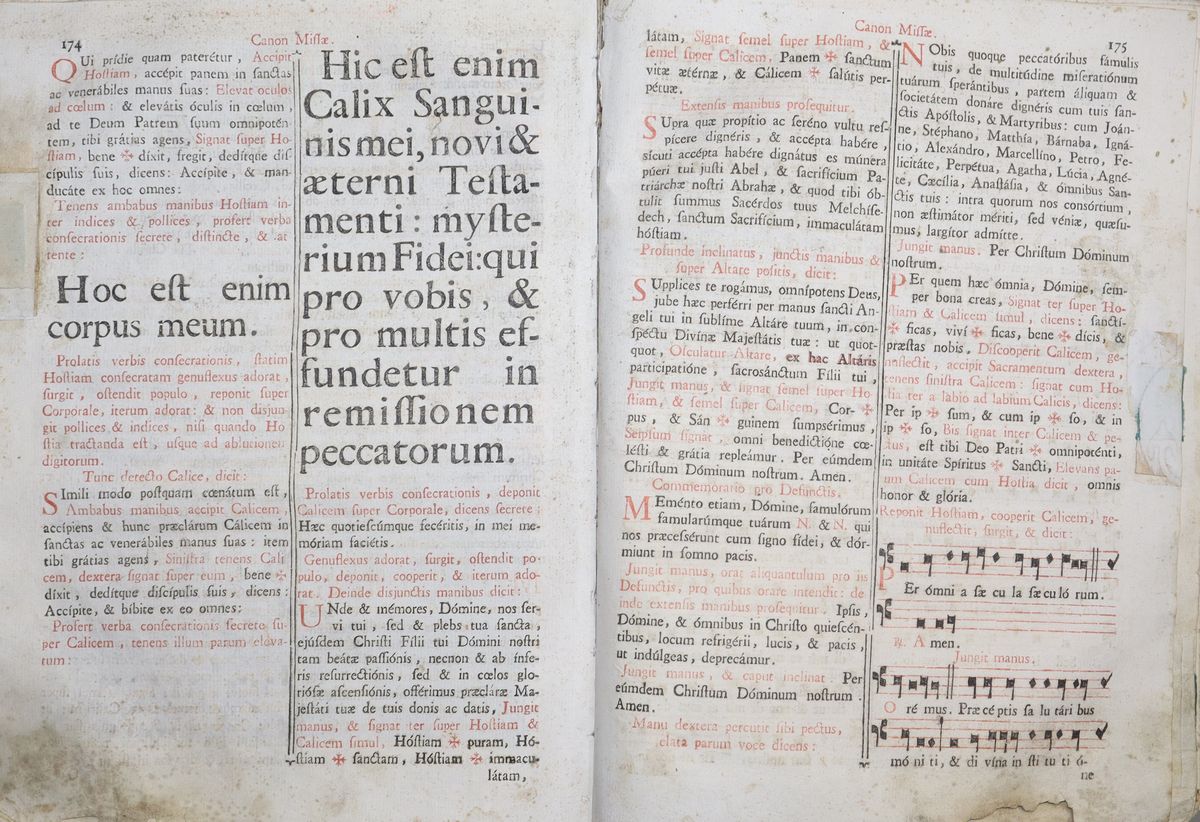 174
Canon Missæ.
QUi prídie quam paterétur, Accipit
Hostiam, accépit panem in sanctas
ac venerábiles manus suas: Elevat oculos
ad cœlum: & elevátis óculis in cœlum,
ad te Deum Patrem suum omnipotén-
tem, tibi grátias agens, Signat super Ho-
stiam, bene ✠ díxit, fregit, dedítque dis-
cípulis suis, dicens: Accípite, & man-
ducáte ex hoc omnes:
Tenens ambabus manibus Hostiam in-
ter indices & pollices, profert verba
consecrationis secrete, distincte, & at
tente:
Hoc est enim
corpus meum.
Prolatis verbis consecrationis, statim
Hostiam consecratam genuflexus adorat,
surgit, ostendit populo, reponit super
Corporale, iterum adorat: & non disjun-
git pollices & indices, nisi quando Ho
stia tractanda est, usque ad ablutionem
digitorum.
Tunc detecto Calice, dicit:
SImili modo postquam cœnátum est,
Ambabus manibus accipit Calicem,
accípiens & hunc præclárum Cálicem in
sanctas ac venerábiles manus suas: item
tibi grátias agens, Sinistra tenens Cali
cem, dextera signat super eum, bene ✠
díxit, dedítque discípulis suis, dicens:
Accípite, & bíbite ex eo omnes:
Profert verba consecrationis secrete su-
per Calicem, tenens illum parum eleva-
tum:
Hic est enim
Calix Sangui-
nis mei, novi &
æterni Testa-
menti: myste-
rium Fidei: qui
pro vobis, &
pro multis ef-
fundetur in
remissionem
peccatorum.
Prolatis verbis consecrationis, deponit
Calicem super Corporale, dicens secrete:
Hæc quotiescúmque fecéritis, in mei me-
móriam faciétis.
Genuflexus adorat, surgit, ostendit po
pulo, deponit, cooperit, & iterum ado-
rat. Deinde disjunctis manibus dicit:
UNde & mémores, Dómine, nos ser-
vi tui, sed & plebs tua sancta,
ejúsdem Christi Fílii tui Dómini nostri
tam beátæ passiónis, necnon & ab ínfe-
ris resurrectiónis, sed & in cœlos glo-
riósæ ascensiónis, offérimus præcláræ Ma-
jestáti tuæ de tuis donis ac datis, Jungit
manus, & signat ter super Hostiam &
Calicem simul, Hóstiam ✠ puram, Hó-
stiam ✠ sanctam, Hóstiam ✠ immacu-
látam,
Canon Missæ.
175
látam, Signat semel super Hostiam, &
semel super Calicem, Panem ✠ sanctum
vitæ ætérnæ, & Cálicem ✠ salútis per-
pétuæ.
Extensis manibus prosequitur.
SUpra quæ propítio ac seréno vultu res-
pícere dignéris, & accépta habére,
sícuti accépta habére dignátus es múnera
púeri tui justi Abel, & sacrifícium Pa-
triárchæ nostri Abrahæ, & quod tibi ób-
tulit summus Sacérdos tuus Melchíse-
dech, sanctum Sacrifícium, immaculátam
hóstiam.
Profunde inclinatus, junctis manibus &
super Altare positis, dicit:
SUpplices te rogámus, omnípotens Deus,
jube hæc perférri per manus sancti An-
geli tui in sublíme Altáre tuum, in con-
spéctu Divínæ Majestátis tuæ: ut quot-
quot, Osculatur Altare, ex hac Altáris
participatióne, sacrosánctum Fílii tui,
Jungit manus, & signat semel super Ho
stiam, & semel super Calicem, Cor- ✠
pus, & Sán ✠ guinem sumpsérimus,
Seipsum signat, omni benedictióne cœ-
lésti & grátia repleámur. Per eúmdem
Christum Dóminum nostrum. Amen.
Commemorario pro Defunctis.
MEménto etiam, Dómine, famulórum
famularúmque tuárum N. & N. qui
nos præcessérunt cum signo fídei, & dór-
miunt in somno pacis.
Jungit manus, orat aliquantulum pro iis
Defunctis, pro quibus orare intendit: de
inde extensis manibus prosequitur. Ipsis,
Dómine, & ómnibus in Christo quiescén-
tibus, locum refrigérii, lucis, & pacis,
ut indúlgeas, deprecámur.
Jungit manus, & caput inclinat. Per
eúmdem Christum Dóminum nostrum.
Amen.
Manu dextera percutit sibi pectus,
elata parum voce dicens:
NObis quoque peccatóribus fámulis
tuis, de multitúdine miseratiónum
tuárum sperántibus, partem áliquam &
societátem donáre dignéris cum tuis san-
ctis Apóstolis, & Martyribus: cum Joán-
ne, Stéphano, Matthía, Bárnaba, Igná-
tio, Alexándro, Marcellíno, Petro, Fe-
licitáte, Perpétua, Agatha, Lúcia, Agné-
te, Cæcília, Anastásia, & ómnibus San-
ctis tuis: intra quorum nos consórtium,
non æstimátor mériti, sed véniæ, quæsu-
mus, largítor admítte.
Jungit manus. Per Christum Dóminum
nostrum.
PEr quem hæc ómnia, Dómine, sem-
per bona creas, Signat ter super Ho-
stiam & Calicem simul, dicens: sanctí-
✠ ficas, viví ✠ ficas, bene ✠ dícis, &
præstas nobis. Discooperit Calicem, ge-
nuflectit, accipit Sacramentum dextera,
tenens sinistra Calicem: signat cum Ho-
stia ter a labio ad labium Calicis, dicens:
Per ip ✠ sum, & cum ip ✠ so, & in
ip ✠ so, Bis signat inter Calicem & pe-
ctus, est tibi Deo Patri ✠ omnipoténti,
in unitáte Spíritus ✠ Sancti, Elevans pa-
rum Calicem cum Hostia dicit, omnis
honor & glória.
Reponit Hostiam, cooperit Calicem, ge-
nuflectit, surgit, & dicit:
PEr ómni a sæ cu la sæculó rum.
℟. A men.
Jungit manus.
O ré mus. Præcéptis sa lu tári bus
mó ni ti, & di vína in sti tu ti ó-
ne